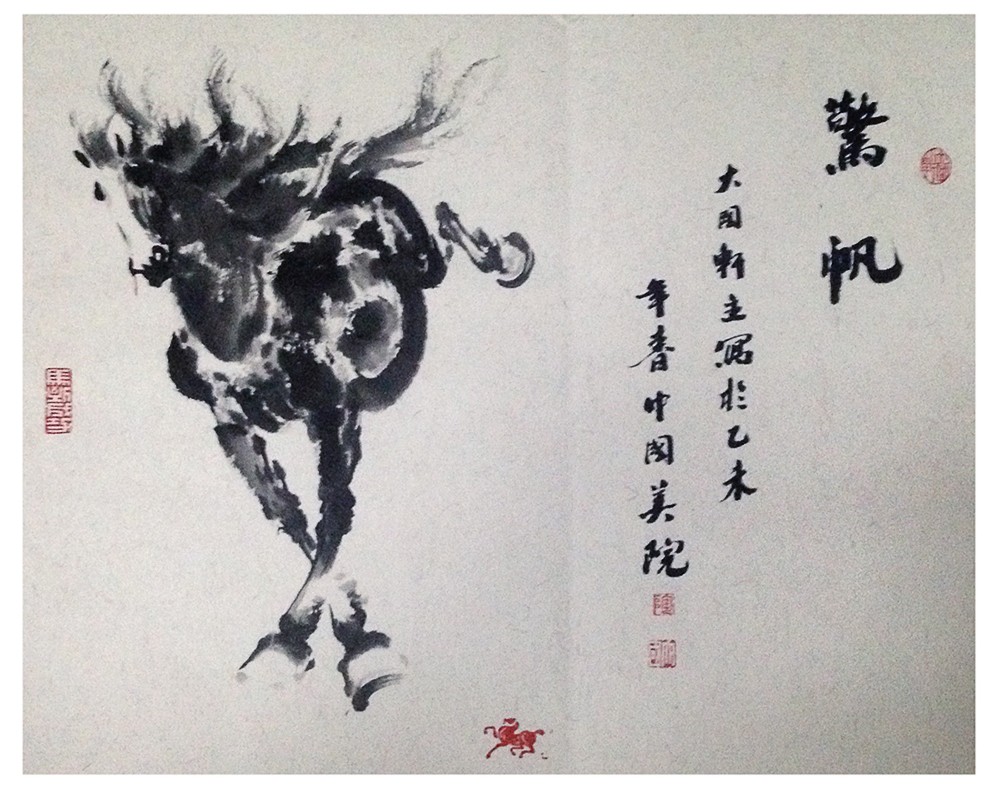 驚帆
大国軒主寫於乙未
年春中國美院